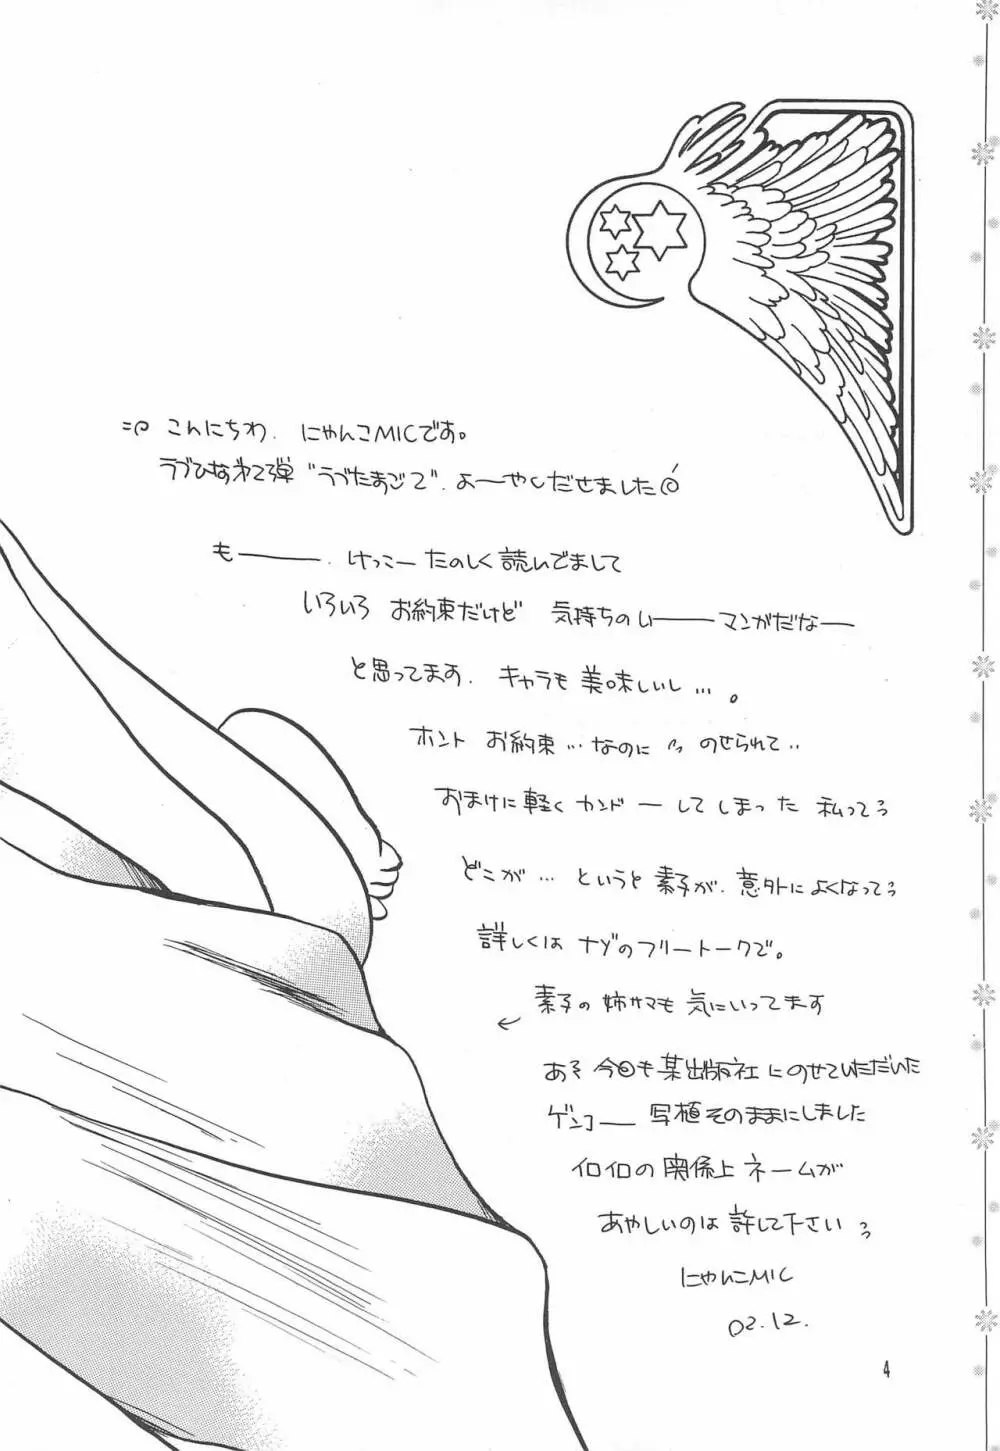 こんにちわ、にゃんこMICです。
ラブひなネタ弾"ラブたまごて"、よーやくだせました
もー―――、けっこーたのしく読んでまして
いろいろ お約束だけど 気持ちのいー―――マンガだなー
と思ってます、キャラも美味しいし…。
ホント お約束…なのに のせられて‥
おまけに軽くカンドーしてしまった 私って
どこが…というと素子が、意外によくなって
詳しくは ナゾのフリートークで。
素子の姉サマも 気にいってます
あそ 今回も某出版社にのせていただいた
ゲンコー 写植そのままにしました
イロイロの関係上ネームが
あやしいのは 許して下さい
にゃんこMIC
02.12.
4